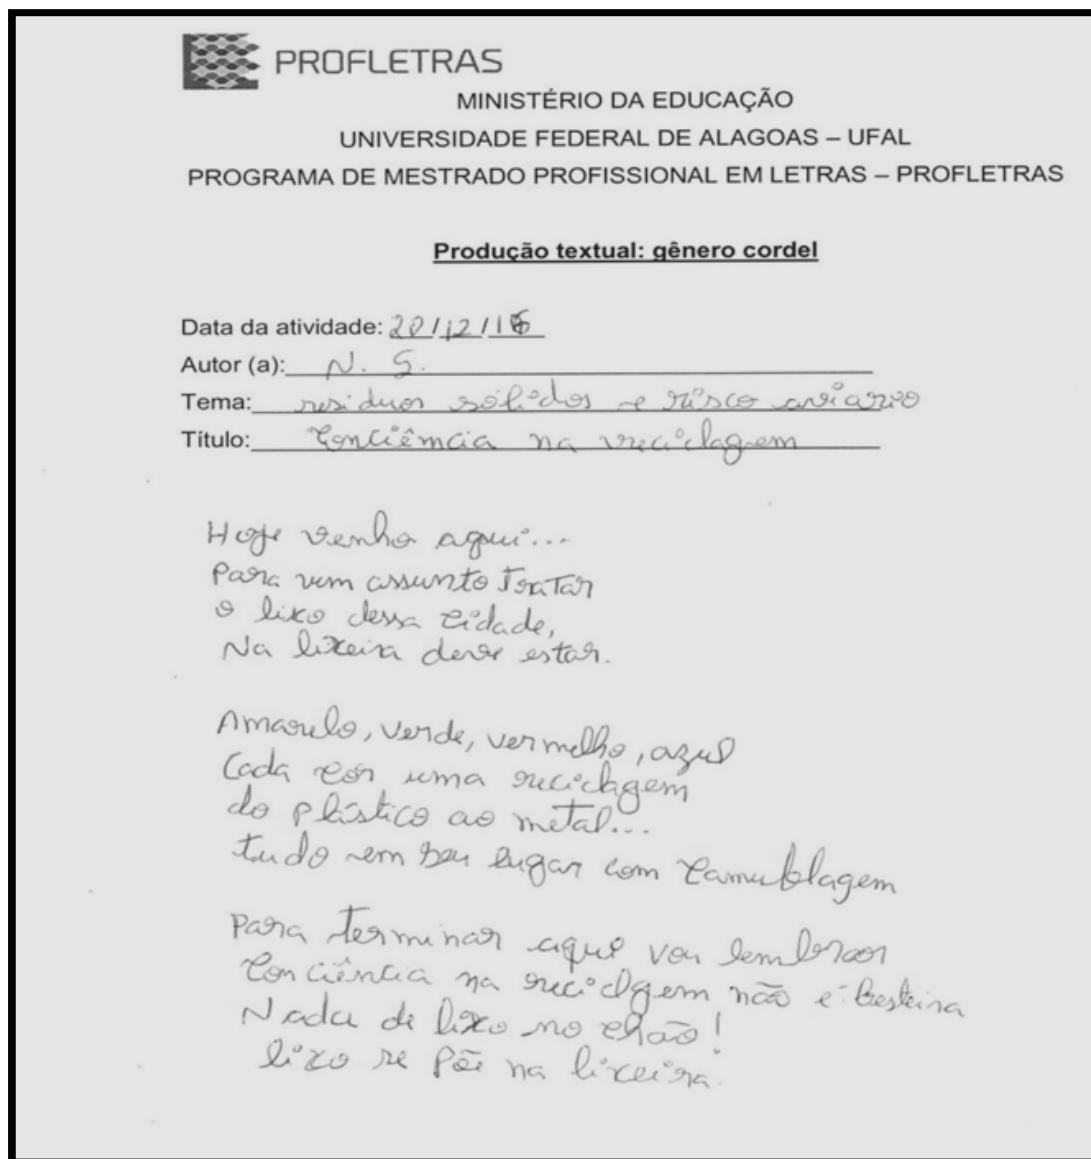 PROFLETRAS
MINISTÉRIO DA EDUCAÇÃO
UNIVERSIDADE FEDERAL DE ALAGOAS – UFAL
PROGRAMA DE MESTRADO PROFISSIONAL EM LETRAS – PROFLETRAS
Produção textual: gênero cordel
Data da atividade: 20/12/16
Autor (a): N. S.
Tema: residuos sólidos e risco aviario
Título: Conciência na reciclagem
Hoje venho aqui...
Para um assunto Tratar
o lixo dessa cidade,
Na lixeira deve estar.
Amarelo, verde, vermelho, azul
Cada cor uma reciclagem
do plástico ao metal...
tudo em seu lugar com camublagem
Para terminar aqui vou lembrar
Conciência na reciclgem não é besteira
Nada de lixo no chão!
lixo se Põe na lixeira.